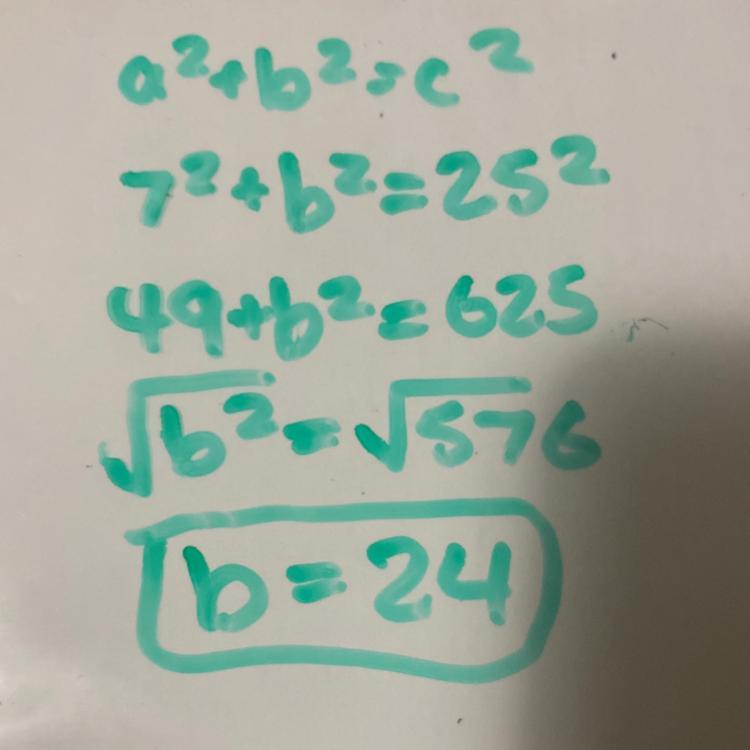 a²+b²=c²
7²+b²=25²
49+b²=625
√b²=√576
b=24